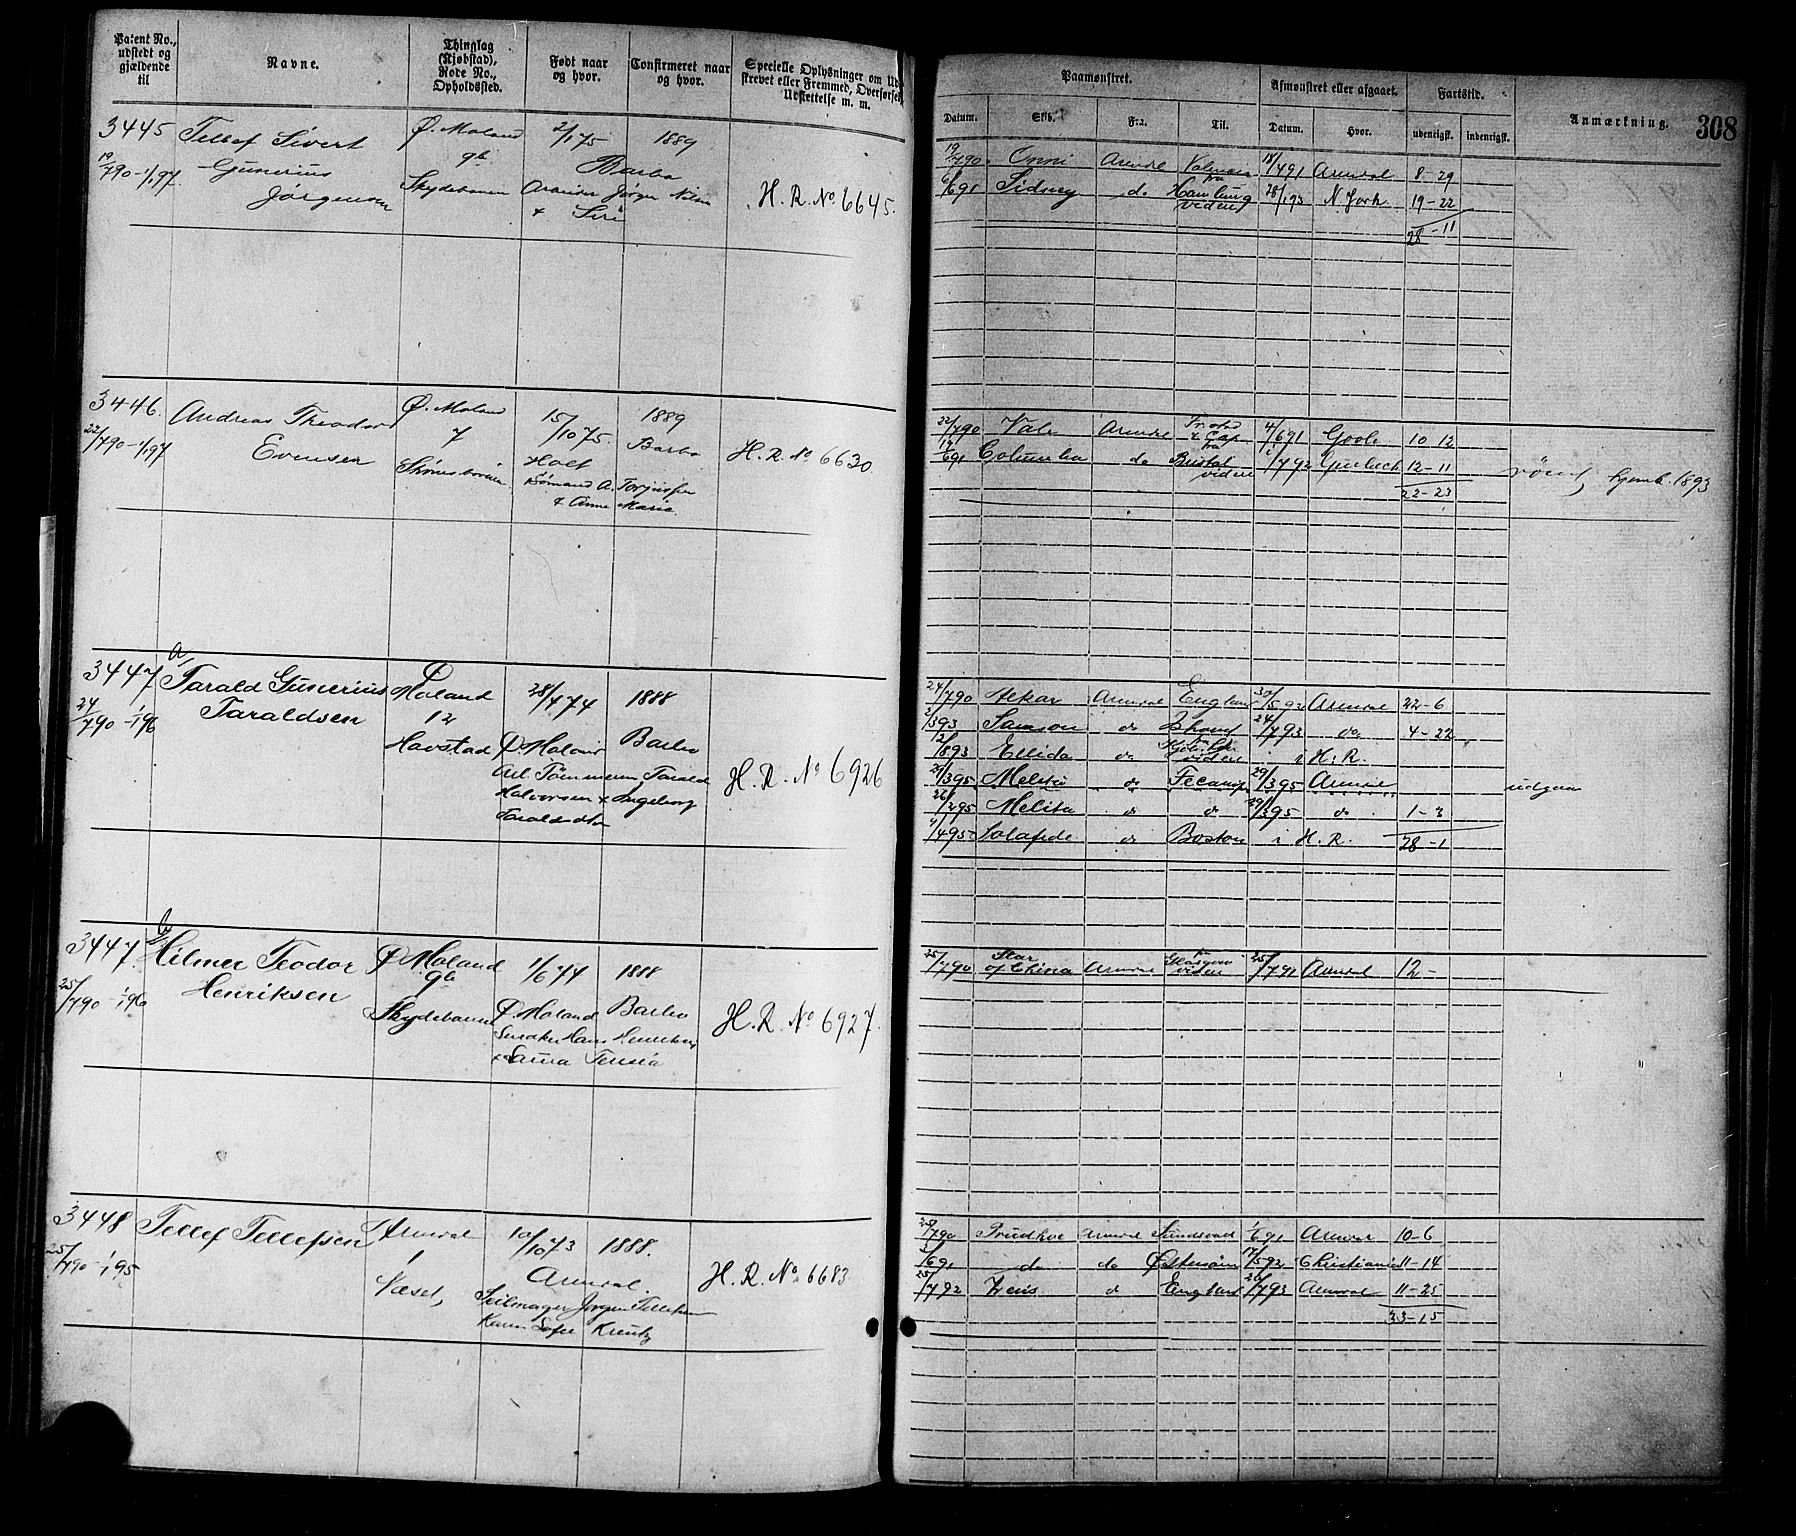 Patent No., udstedt og gjældende til
Navne.
Thinglag (Kjøbstad), Rode No., Opholdssted.
Født naar og hvor.
Confirmeret naar og hvor.
Specielle Oplysninger om Ud-
skrevet eller Fremmed, Overførsel,
Udslettelse m. m.
Paamønstret.
Afmønstret eller afgaaet.
Fartstid.
Anmærkning.
308
Datum. Skib. Fra. Til. Datum. Hvor. udenrigsk. indenrigsk.
3445 Tellef Sivert Ø. Moland 2/1 75 1889
19/7 90 - 1/1 97 Gunerius 9b Barbo
Jørgensen Skydebanen Arbeider Jørgen Nilsen
& Siri
H. R. No. 6645.
19/7 90 Onni Arendal 18/4 91 Arendal 8-29
6/6 91 Sidney do Hamburg 28/1 93 N York 19-22
videre
28-11
3446. Andreas Theodor Ø. Moland 15/10 75. 1889
22/7 90 - 1/1 97 Evensen 7 Holt Barbo
Sømand A. Torjussen
& Anne Marie.
H. R. No 6630
22/7 90 Vale Arendal 4/6 91 Goole 10-12
12/6 91 Columba do Bristol 1/7 92 12-11
videre
22-23
rømt, hjemk. 1893
3447 a/ Tarald Gunerius Ø Moland 28/4 74 1888
24/7 90 - 1/1 96 Taraldsen 12
Havstad Ø. Moland Barbo
Arb. Tømmermand Tarald
Halvorsen & Ingeborg
Taraldsdtr
H. R. No 6926
24/7 90 Arendal England 30/5 92 Arendal 22-6
2/3 93 Samson do 24/7 93 do 4-22
12/8 93 Ellida do videre i H. R.
26/3 95 do Fecamp 29/3 95 Arendal
udgaar
26/2 95 Melita do do 29/3 95 do 1-3
4/4 95 Solafide do Boston i H. R. 28-1
3447. b/ Hilmer Teodor Ø Moland 1/6 74 1888
25/7 90 - 1/1 96 Henriksen 9b
Skydebanen Ø. Moland Barbo
Snedker Hans Henriksen
H. R. No 6927.
25/7 90 Star of China Arendal Glasgow videre 25/7 91 Arendal 12-
3448 Tellef Tellefsen Arendal 10/10 73 1888.
25/7 90 - 1/1 95 1 Arendal.
Væset, Seilmager Jørgen Tellefsen
Karen Sofie Kreutz
H. R. No. 6683
25/7 90 Prudhoe Arendal Sundsvall 1/6 91 Arendal 10-6
5/6 91 do do 17/5 92 Christiania 11-14
25/7 92 Zeus do England 20/7 93 Arendal 11-25
33-15